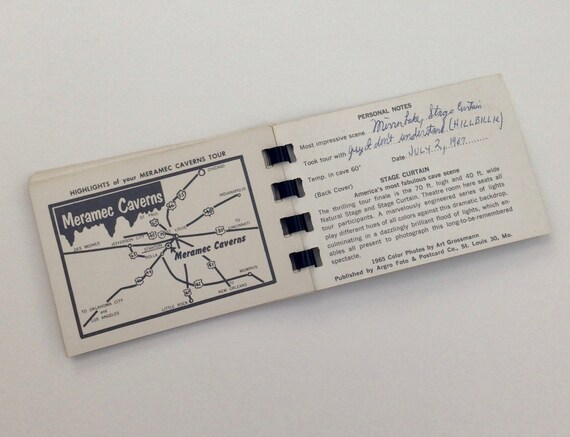 HIGHLIGHTS of your MERAMEC CAVERNS TOUR
Meramec Caverns
CHICAGO
INDIANAPOLIS
DES MOINES
JEFFERSON CITY
ST. LOUIS
TO CINCINNATI
STANTON
ROLLA
Meramec Caverns
TO OKLAHOMA CITY
and
LOS ANGELES
LITTLE ROCK
MEMPHIS
TO NEW ORLEANS
PERSONAL NOTES
Most impressive scene Mirror Lake, Stage Curtain
Took tour with guy I don't understand. (HILLBILLIE)
Temp. in cave 60° Date JULY. 2, 1967
(Back Cover)
STAGE CURTAIN
America's most fabulous cave scene
The thrilling tour finale is the 70 ft. high and 40 ft. wide
Natural Stage and Stage Curtain. Theatre room here seats all
tour participants. A marvelously engineered series of lights
play different hues of all colors against this dramatic backdrop,
culminating in a dazzlingly brilliant flood of lights, which en-
ables all present to photograph this long-to-be-remembered
spectacle.
1965 Color Photos by Art Grossmann
Published by Argro Foto & Postcard Co., St. Louis 30, Mo.